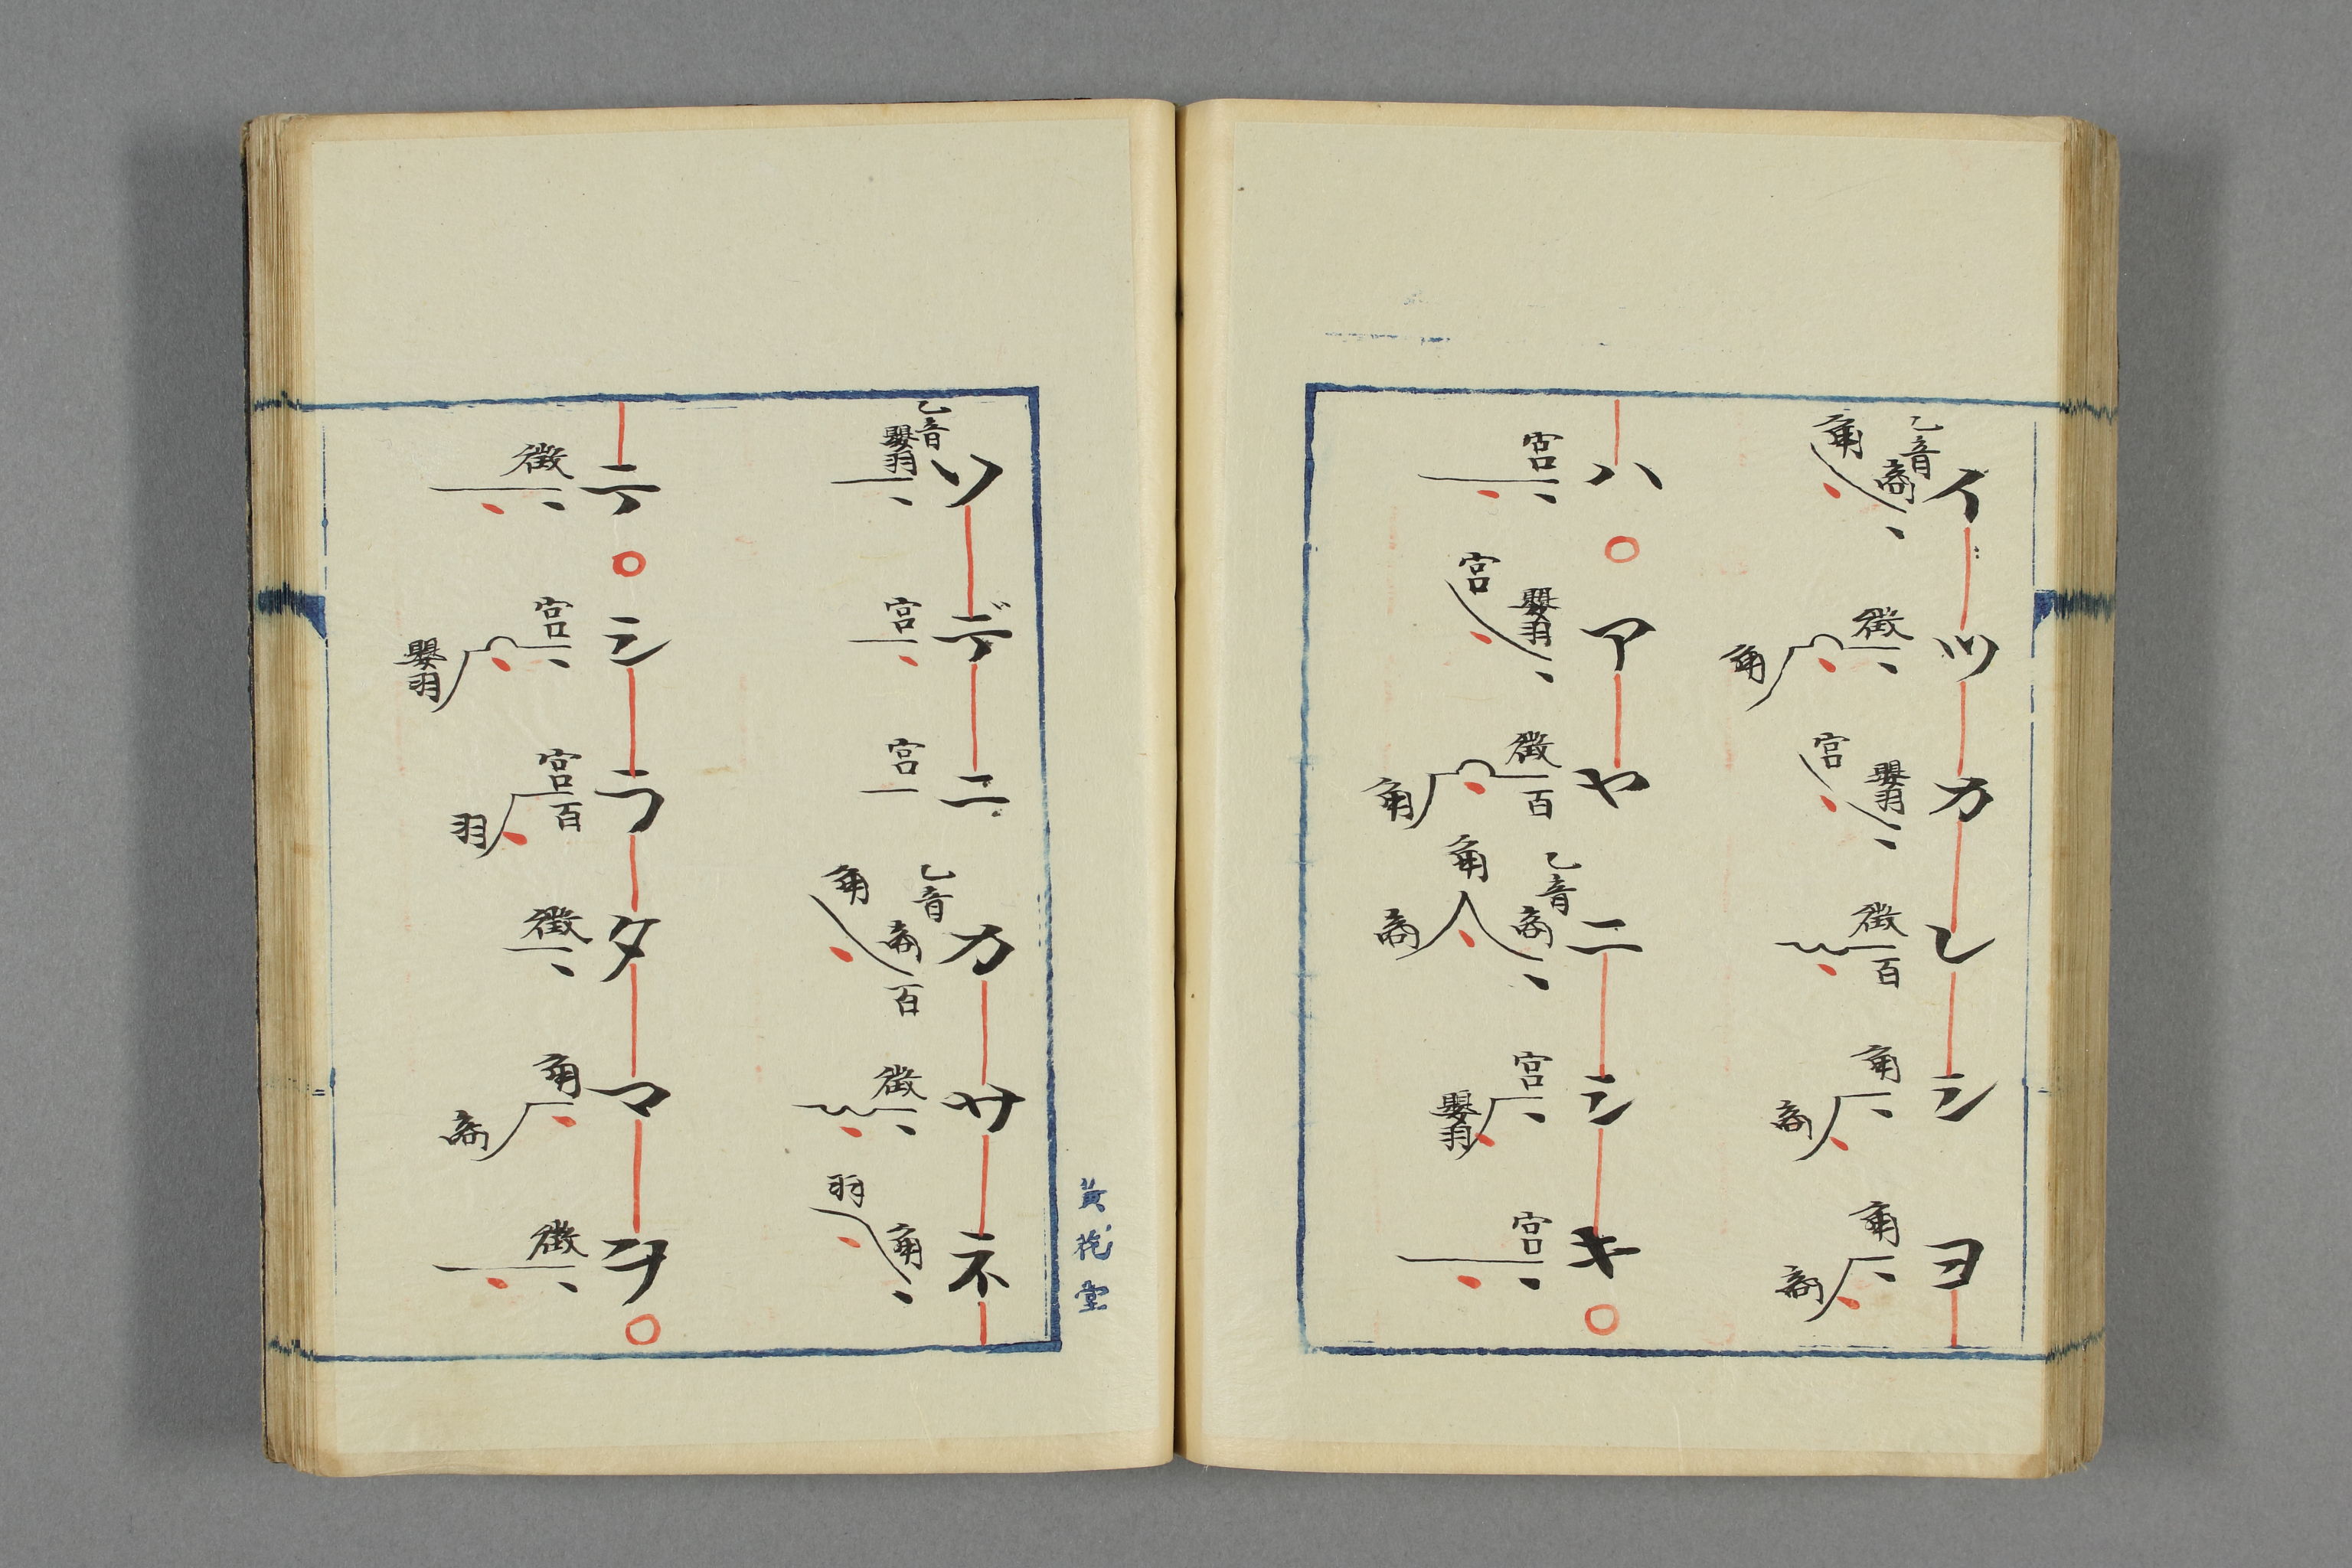 イツカレシヨ
乙音 商 角 徴 角 嬰羽 宮 徴 百 角 商 角 商
ハ○アヤニシキ○
宮 嬰羽 宮 徴 百 角 乙音 商 角 商 宮 嬰羽 宮
黄 堂
ソデニカサネ
乙音 嬰羽 宮 宮 乙音 商 角 百 徴 角 羽
テ○シラタマヲ○
徴 宮 嬰羽 宮 百 羽 徴 角 商 徴